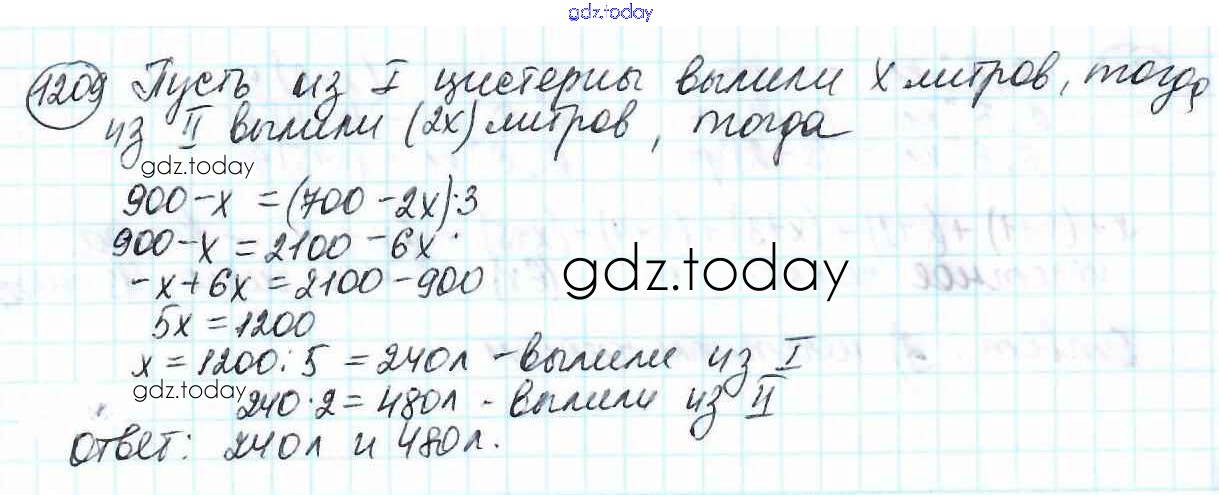 gdz.today
1209 Пусть из I цистерны вылили х литров, тогда
из II вылили (2х) литров, тогда
gdz.today
900-х = (700-2х)·3
900-х = 2100-6х
gdz.today
-х+6х = 2100-900
5х = 1200
х = 1200:5 = 240л - вылили из I
gdz.today
240·2 = 480л - вылили из II
Ответ: 240л и 480л.